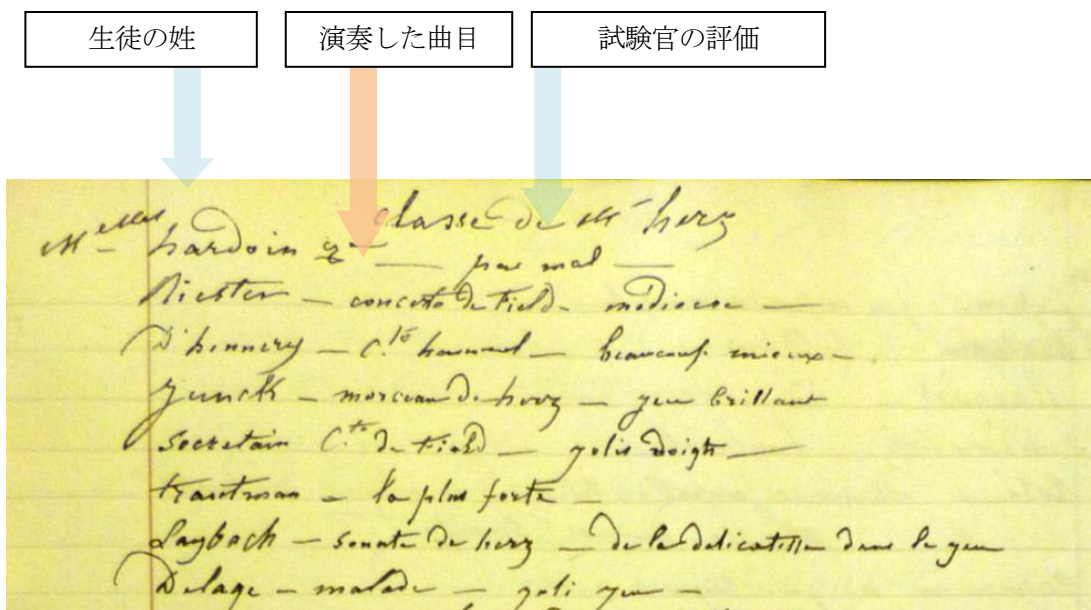 生徒の姓
演奏した曲目
試験官の評価
Classe de Mr herz
Melles hardoin pas mal
Riester – concerto de Field – mediocre
D'hennery – C.to hummel – beaucoup mieux
Junck – morceau de herz – jeu brillant
Secretain C.to de Field – jolis doigts
trautman – la plus forte
Laybach – sonate de herz – de la délicatesse dans le jeu
Delage – malade – joli jeu